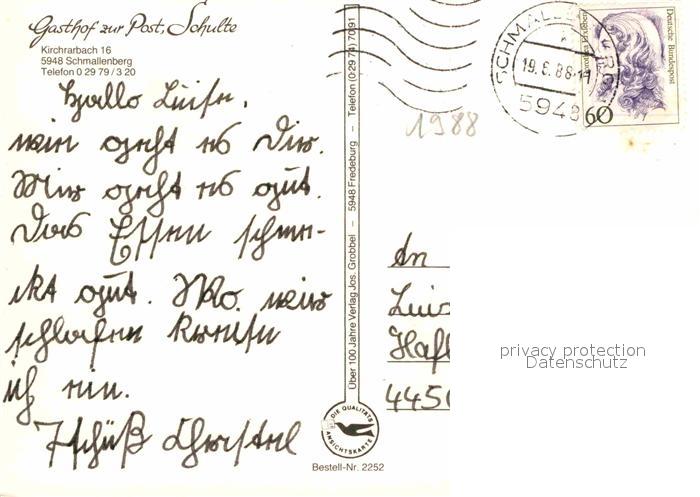 Gasthof zur Post, Schulte
Kirchrarbach 16
5948 Schmallenberg
Telefon 0 29 79 / 3 20
Hallo Luise,
wie geht es Dir.
Mir geht es gut.
Das Essen schme-
ckt gut. Wo wir
schlafen
ich ein.
Tschüß Christel
Über 100 Jahre Verlag Jos. Grobbel – 5948 Fredeburg – Telefon (0 29 74) 70 91
DIE QUALITÄTS
ANSICHTSKARTE
Bestell-Nr. 2252
SCHMALLENBERG
19.6.88-11
5948
Dorothea Erxleben
Deutsche Bundespost
60
1988
An
Luis
Hafl
445
privacy protection
Datenschutz